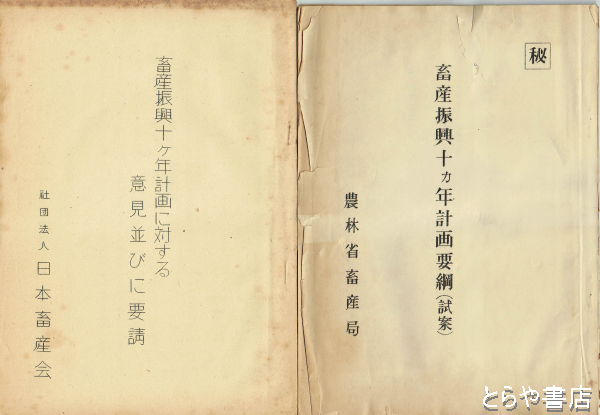 畜産振興十ケ年計画に対する
意見並びに要請
社団法人 日本畜産会
秘
畜産振興十カ年計画要綱(試案)
農林省畜産局
とらや書店